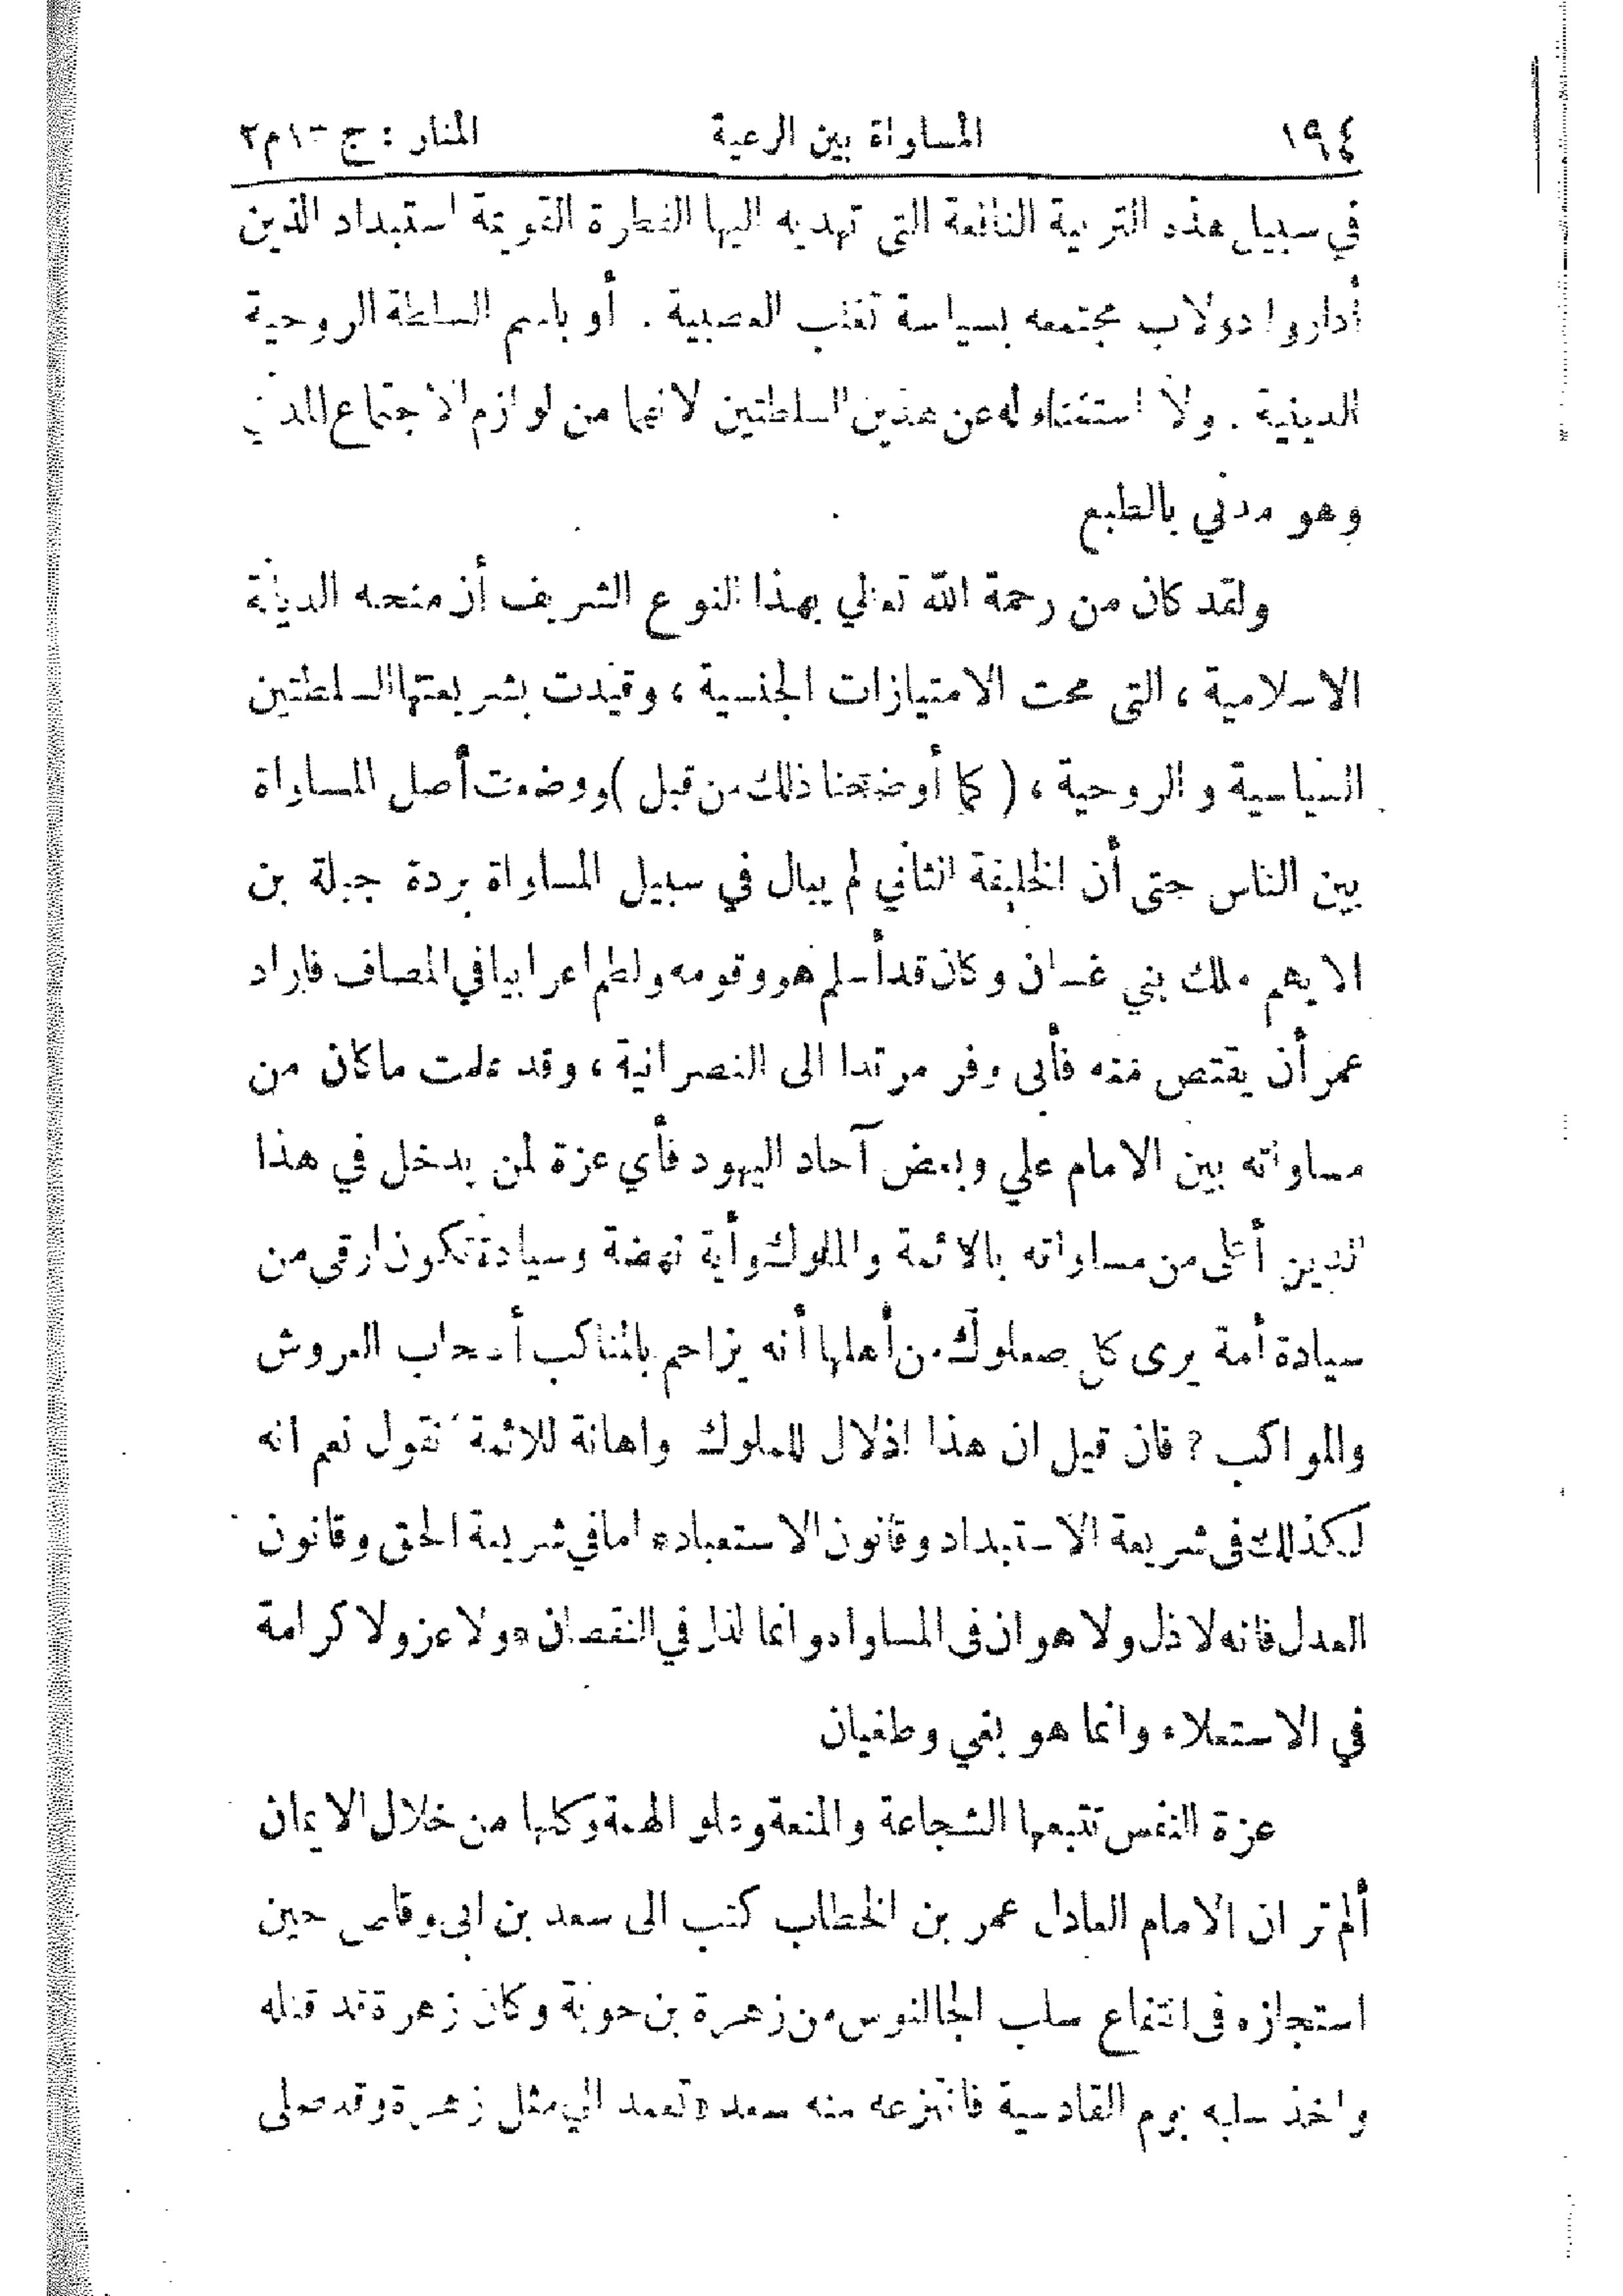 ١٩٤ المساواة بين الرعية المنار : ج ١٠ م ٢
في سبيل هذه التربية النافعة التي تهديه اليها الفطرة القويمة استبداد الذين
أداروا دولاب مجتمعه بسياسة تغلب العصبية . أو باسم السلطة الروحية
الدينية . ولا استغناء له عن هذين السلطتين لانهما من لوازم الاجتماع المدني
وهو مدني بالطبع
ولقد كان من رحمة الله تعالي بهذا النوع الشريف أن منحه الديانة
الاسلامية ، التي محت الامتيازات الجنسية ، وقيدت بشريعتها السلطتين
السياسية والروحية ، ( كما أوضحنا ذلك من قبل ) ووضعت أصل المساواة
بين الناس حتى أن الخليفة الثاني لم يبال في سبيل المساواة بردة جبلة بن
الايهم ملك بني غسان وكان قد أسلم هو وقومه ولطم اعرابيا في المصاف فاراد
عمر أن يقتص منه فأبى وفر مرتدا الى النصرانية ، وقد علمت ما كان من
مساواته بين الامام علي وبعض آحاد اليهود فأي عزة لمن يدخل في هذا
الدين أعلى من مساواته بالائمة والملوك وأية نهضة وسيادة تكون ارقى من
سيادة أمة يرى كل صعلوك من أهلها أنه يزاحم بالمناكب أصحاب العروش
والمواكب ? فان قيل ان هذا اذلال للملوك واهانة للائمة ، نقول نعم انه
لكذلك فى شريعة الاستبداد وقانون الاستعباد * اما في شريعة الحق وقانون
العدل فانه لا ذل ولا هوان فى المساواة وانما الذل في النقصان * ولا عز ولا كرامة
في الاستعلاء وانما هو بغي وطغيان
عزة النفس تتبعها الشجاعة والمنعة وعلو الهمة وكلها من خلال الايمان
ألم تر ان الامام العادل عمر بن الخطاب كتب الى سعد بن ابى وقاص حين
استجازه فى انتزاع سلب الجالنوس من زهرة بن حوية وكان زهرة قد قتله
واخذ سلبه يوم القادسية فانتزعه منه سعد « تعمد الي مثل زهرة وقد صلى